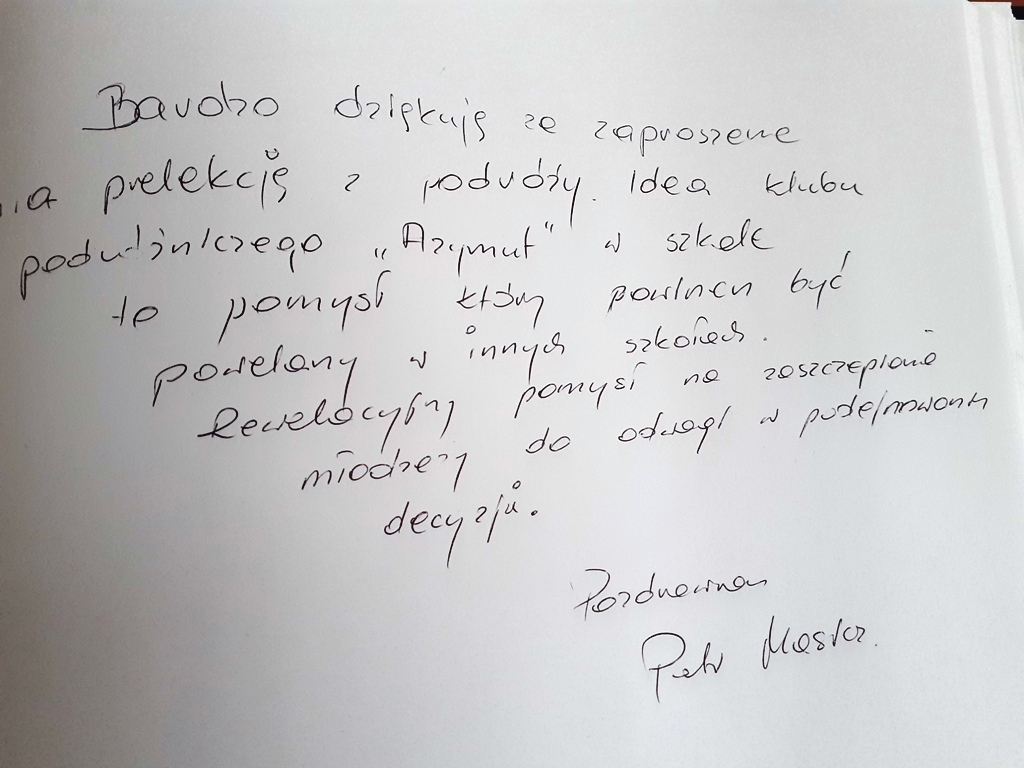 Bardzo dziękuję za zaproszenie
na prelekcję z podróży. Idea klubu
podróżniczego „Azymut" w szkole
to pomysł który powinien być
powielany w innych szkołach.
Rewelacyjny pomysł na zaszczepienie
młodzieży do odwagi w podejmowaniu
decyzji.
Pozdrawiam
Piotr